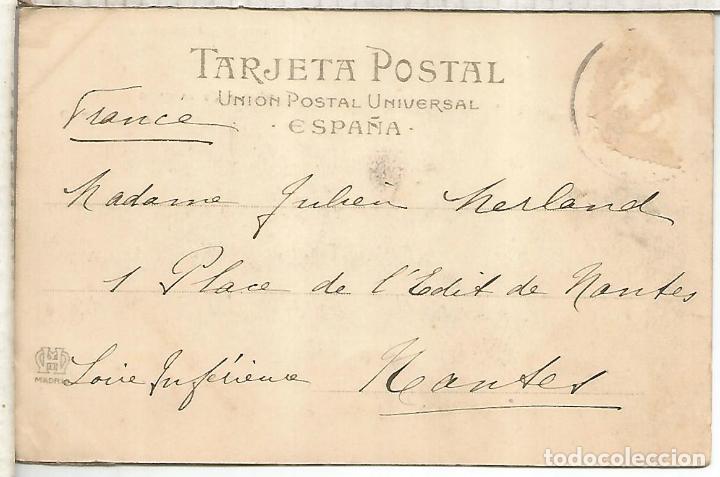 TARJETA POSTAL
UNIÓN POSTAL UNIVERSAL
· ESPAÑA ·
France
Madame Julien Merland
1 Place de l'Edit de Nantes
Loire Inférieure Nantes
MADRID
todocoleccion.net